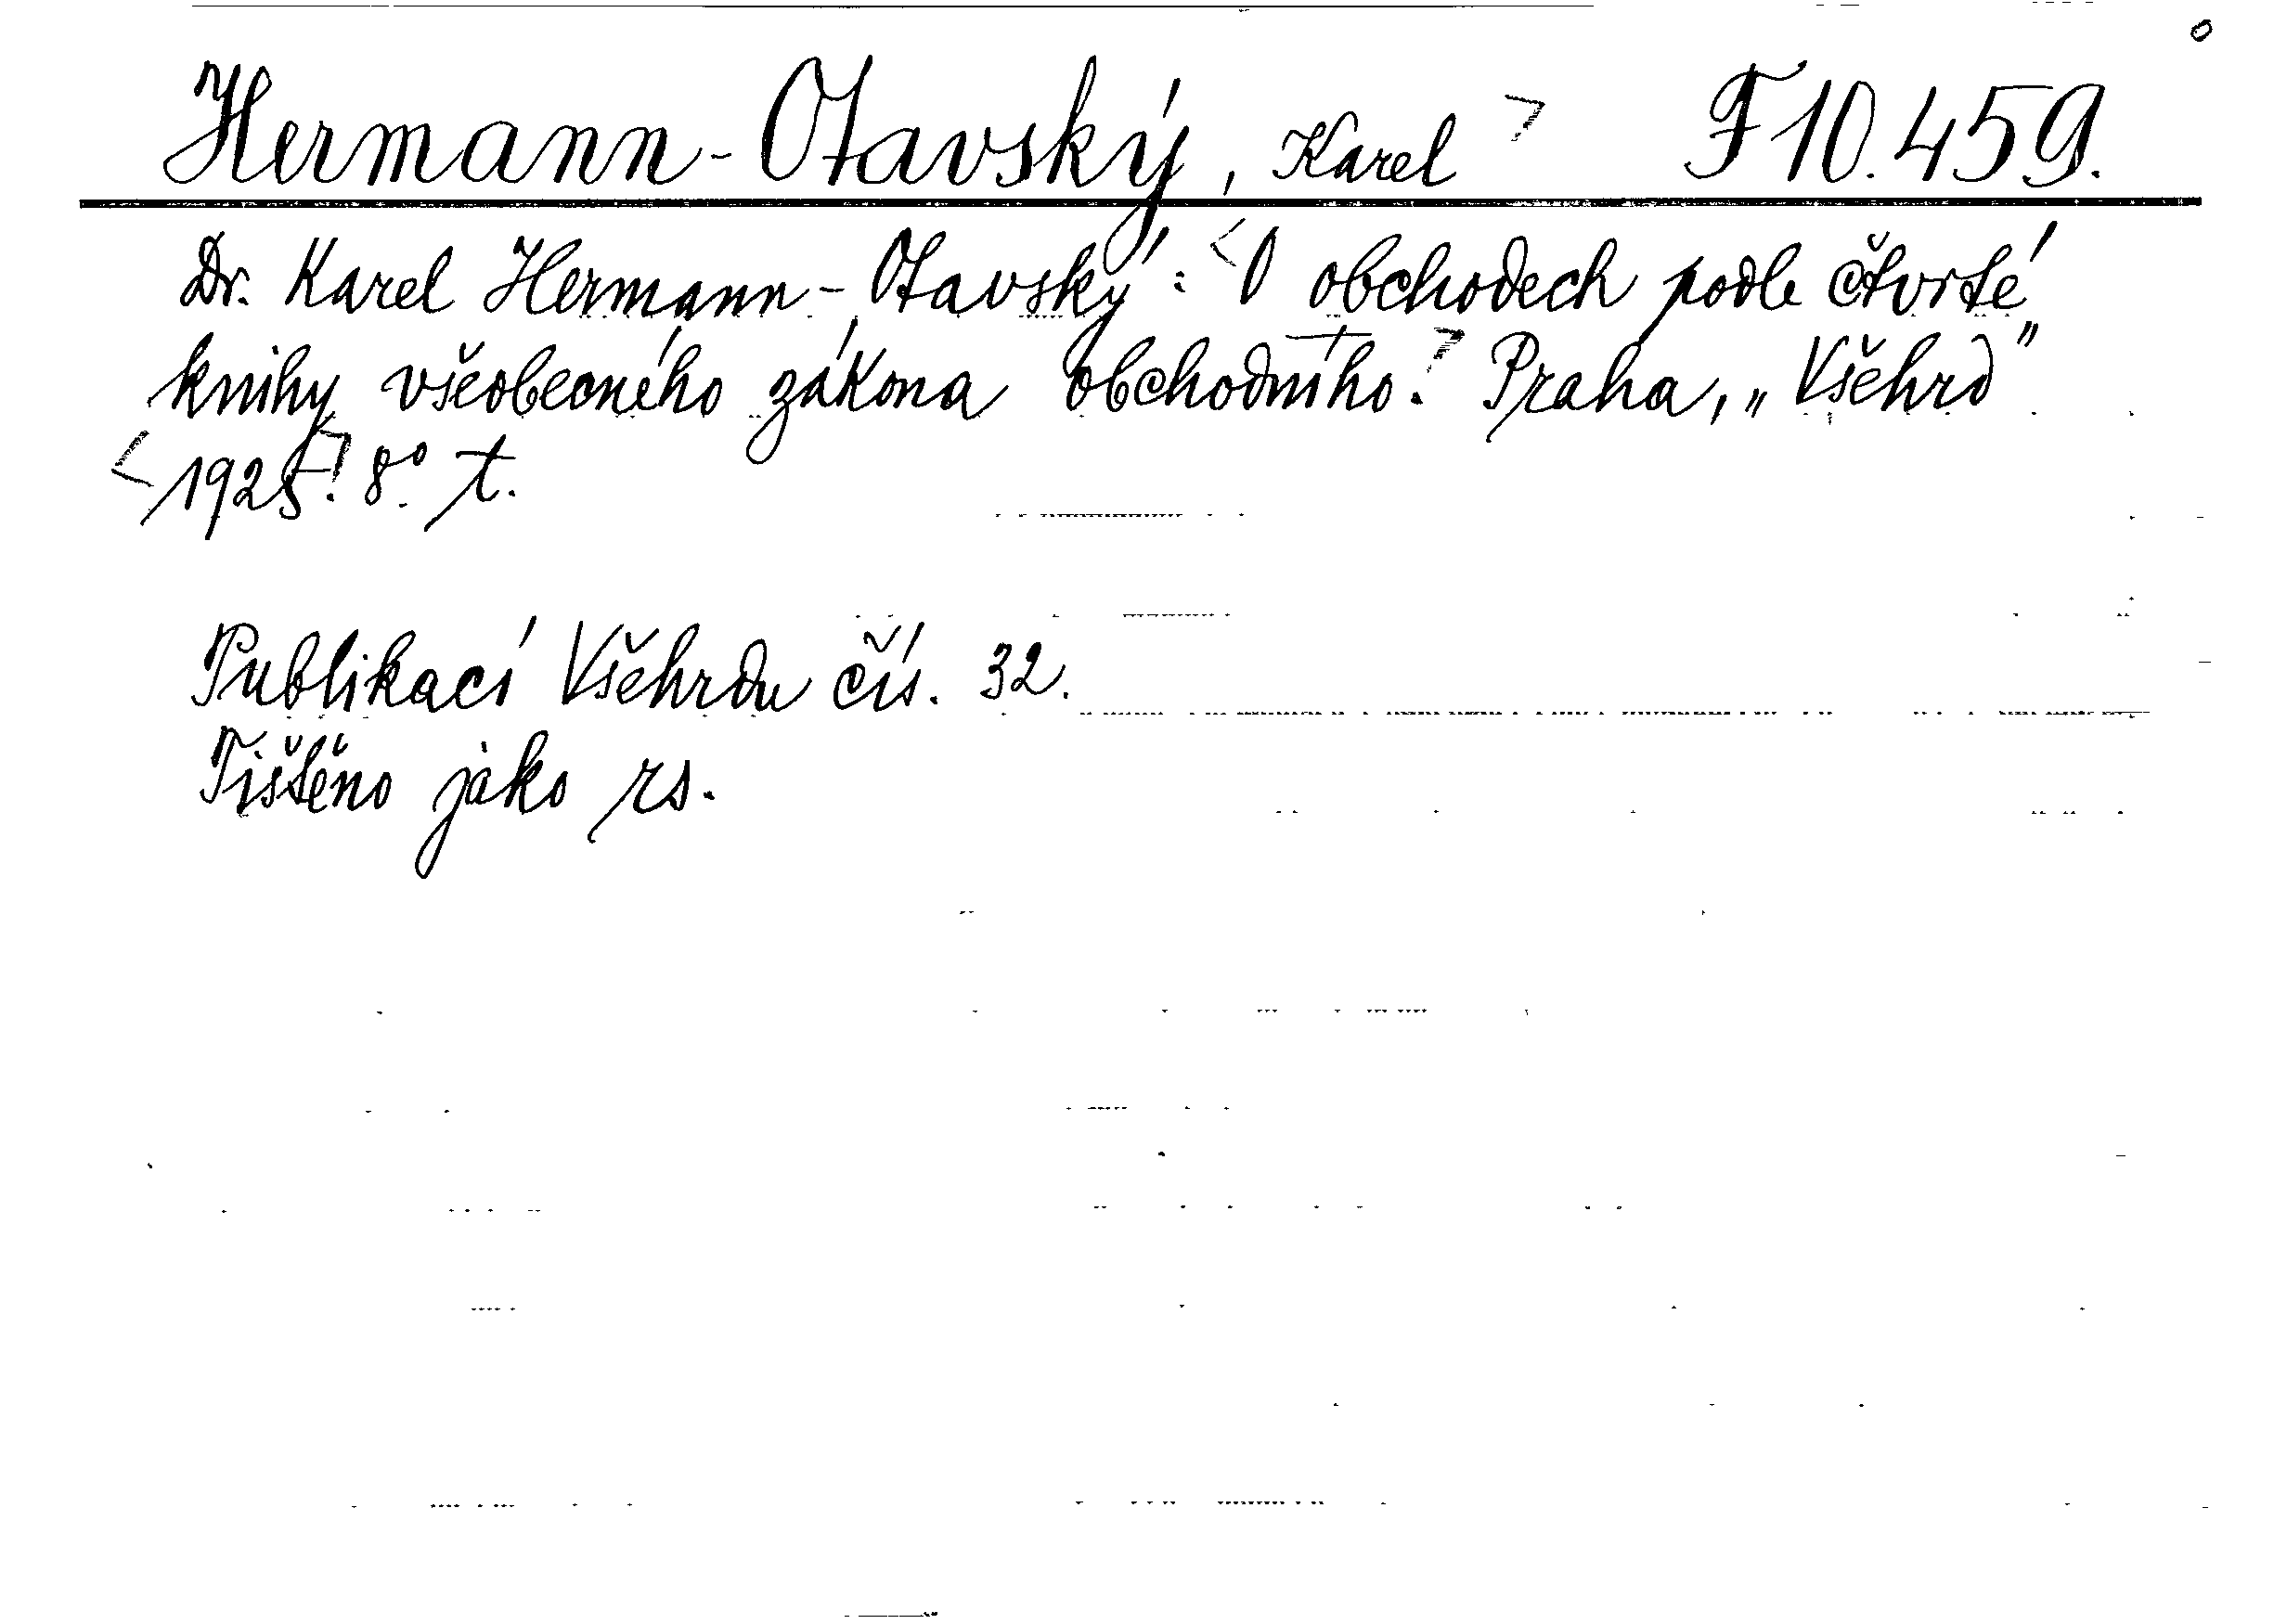 Hermann-Otavský, Karel F 10.459.
Dr. Karel Hermann-Otavský: O obchodech podle čtvrté
knihy všeobecného zákona obchodního. Praha, „Všehrd”
1925. 8° t.
Publikací Všehrdu čís. 32.
Tištěno jako rs.